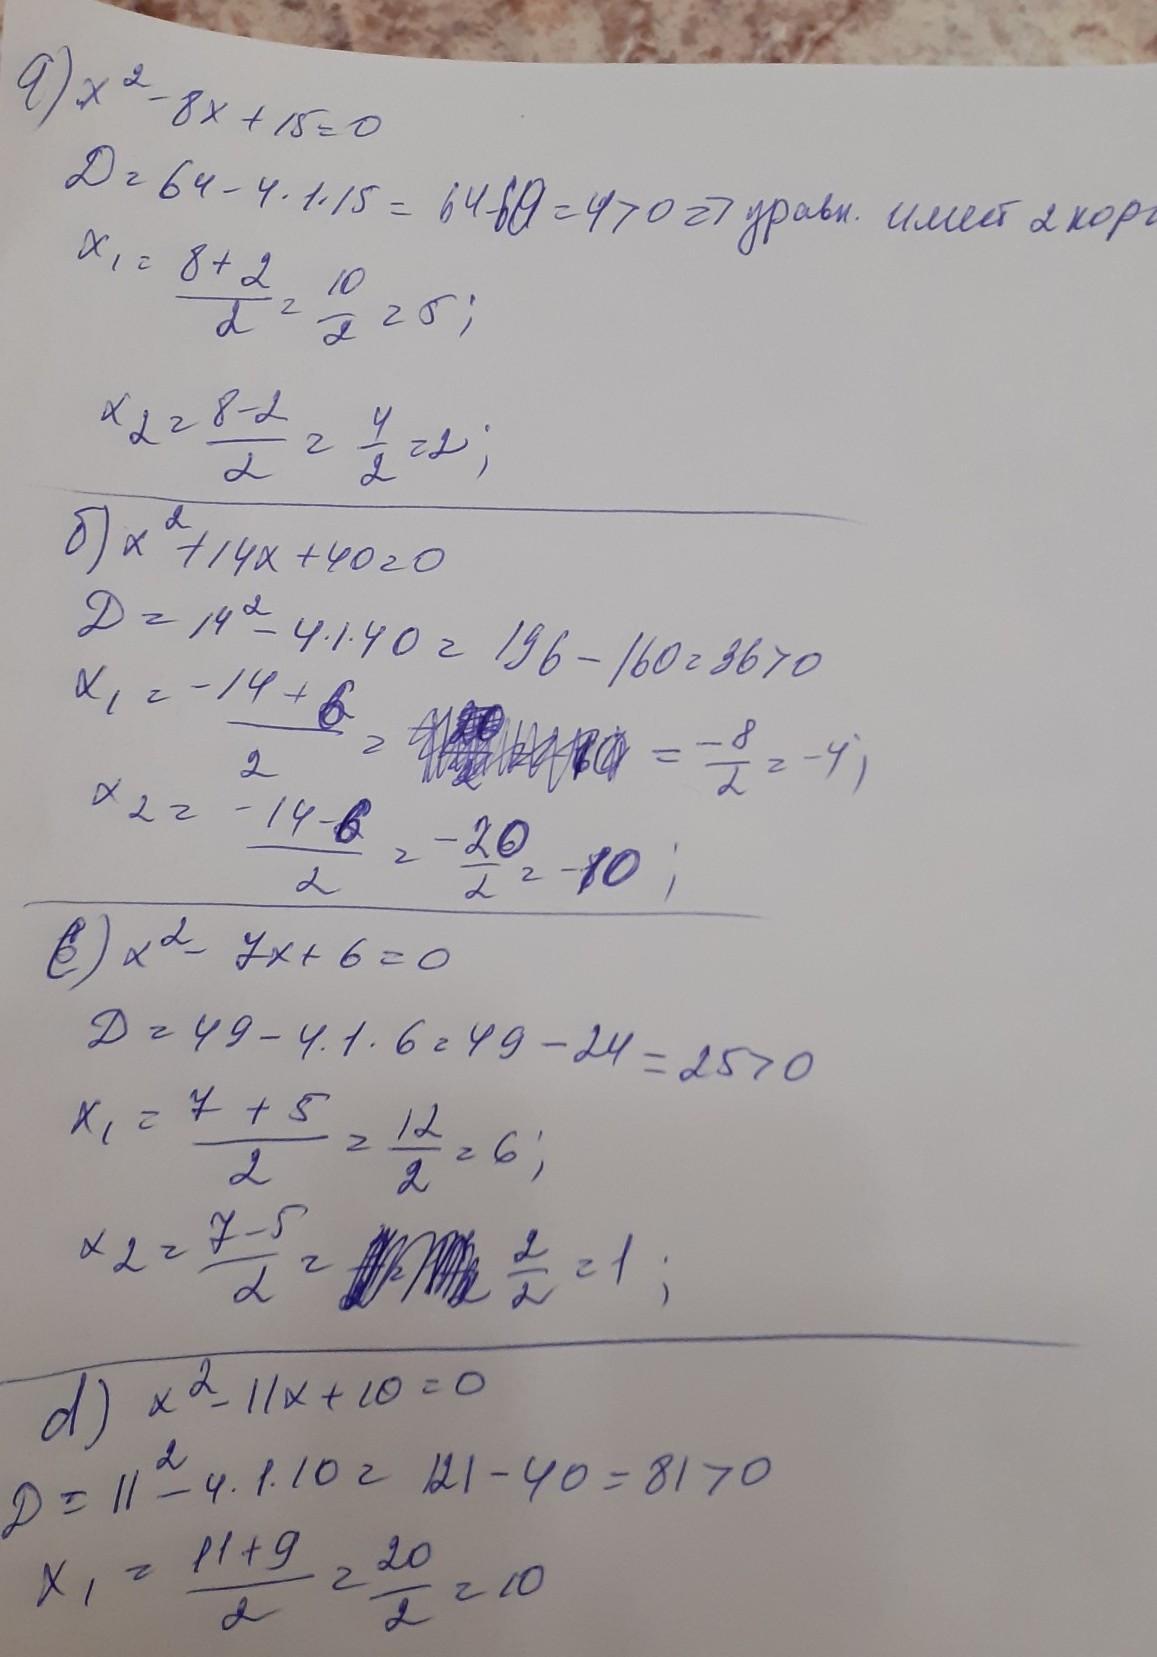 а) x² - 8x + 15 = 0
D = 64 - 4·1·15 = 64-60 = 4 > 0 => уравн. имеет 2 кор
x₁ = (8+2)/2 = 10/2 = 5;
x₂ = (8-2)/2 = 4/2 = 2;
б) x² + 14x + 40 = 0
D = 14² - 4·1·40 = 196 - 160 = 36 > 0
x₁ = (-14+6)/2 = = -8/2 = -4;
x₂ = (-14-6)/2 = -20/2 = -10;
в) x² - 7x + 6 = 0
D = 49 - 4·1·6 = 49 - 24 = 25 > 0
x₁ = (7+5)/2 = 12/2 = 6;
x₂ = (7-5)/2 = 2/2 = 1;
d) x² - 11x + 10 = 0
D = 11² - 4·1·10 = 121 - 40 = 81 > 0
x₁ = (11+9)/2 = 20/2 = 10